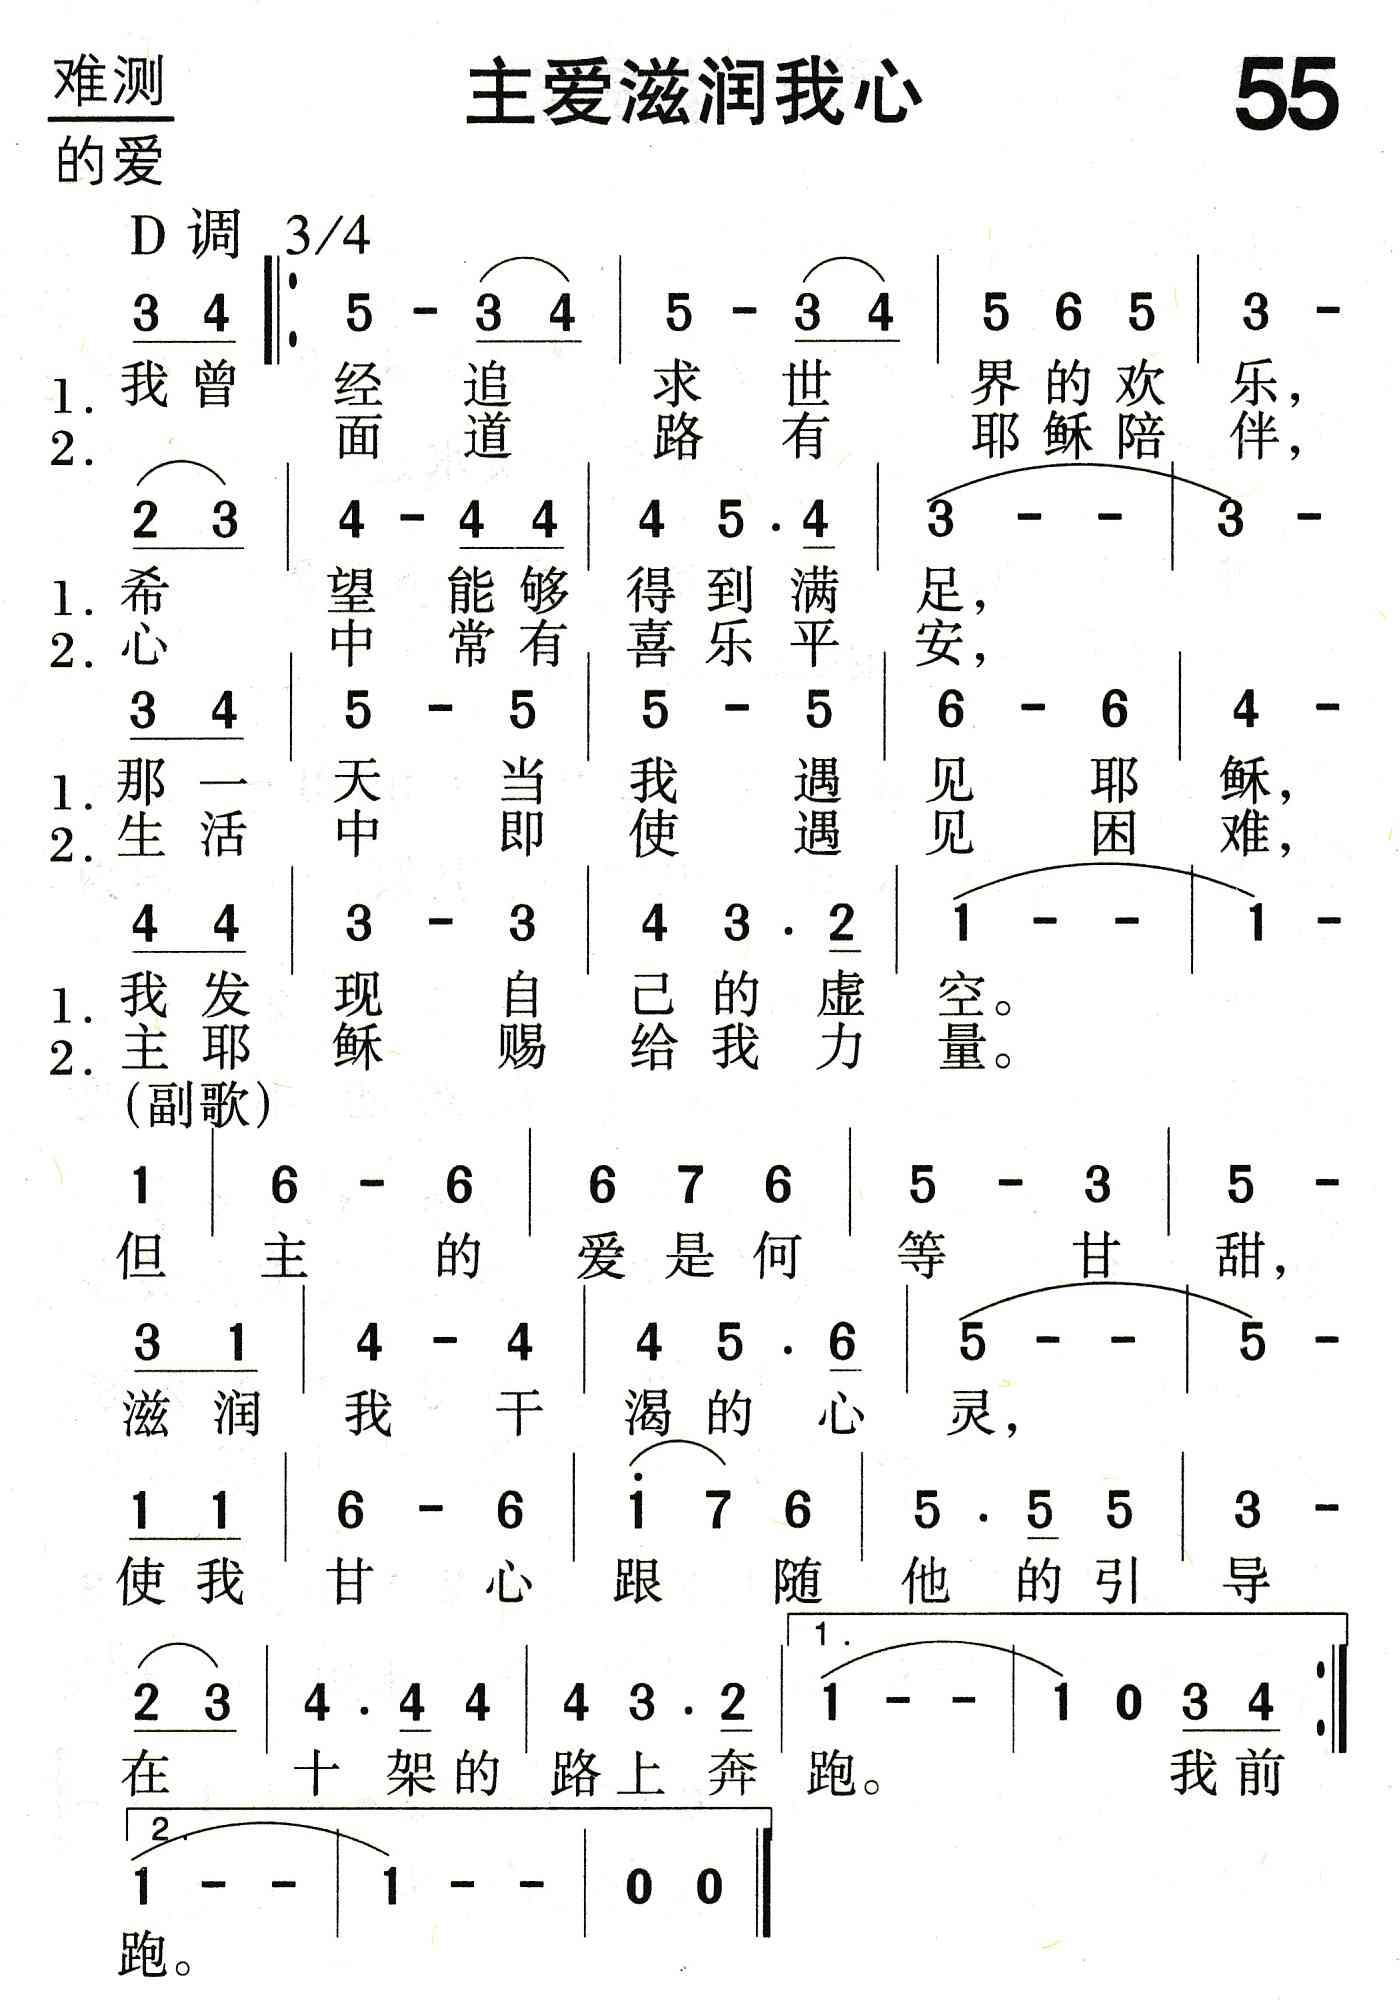 难测
的爱
主爱滋润我心
55
D 调 3/4
3 4 5 - 3 4 5 - 3 4 5 6 5 3 -
1. 我曾 经 追 求 世 界的欢 乐,
2. 面 道 路 有 耶稣陪 伴,
2 3 4 - 4 4 4 5 . 4 3 - - 3 -
1. 希 望 能够 得到满 足,
2. 心 中 常有 喜乐平 安,
3 4 5 - 5 5 - 5 6 - 6 4 -
1. 那一 天 当 我 遇 见 耶 稣,
2. 生活 中 即 使 遇 见 困 难,
4 4 3 - 3 4 3 . 2 1 - - 1 -
1. 我发 现 自 己的虚 空。
2. 主耶 稣 赐 给我力 量。
(副歌)
1 6 - 6 6 7 6 5 - 3 5 -
但 主 的 爱是何 等 甘 甜,
3 1 4 - 4 4 5 . 6 5 - - 5 -
滋润 我 干 渴的心 灵,
1 1 6 - 6 i 7 6 5 . 5 5 3 -
使我 甘 心 跟 随 他 的引 导
1.
2 3 4 . 4 4 4 3 . 2 1 - - 1 0 3 4
在 十 架的 路上奔 跑。 我前
2.
1 - - 1 - - 0 0
跑。